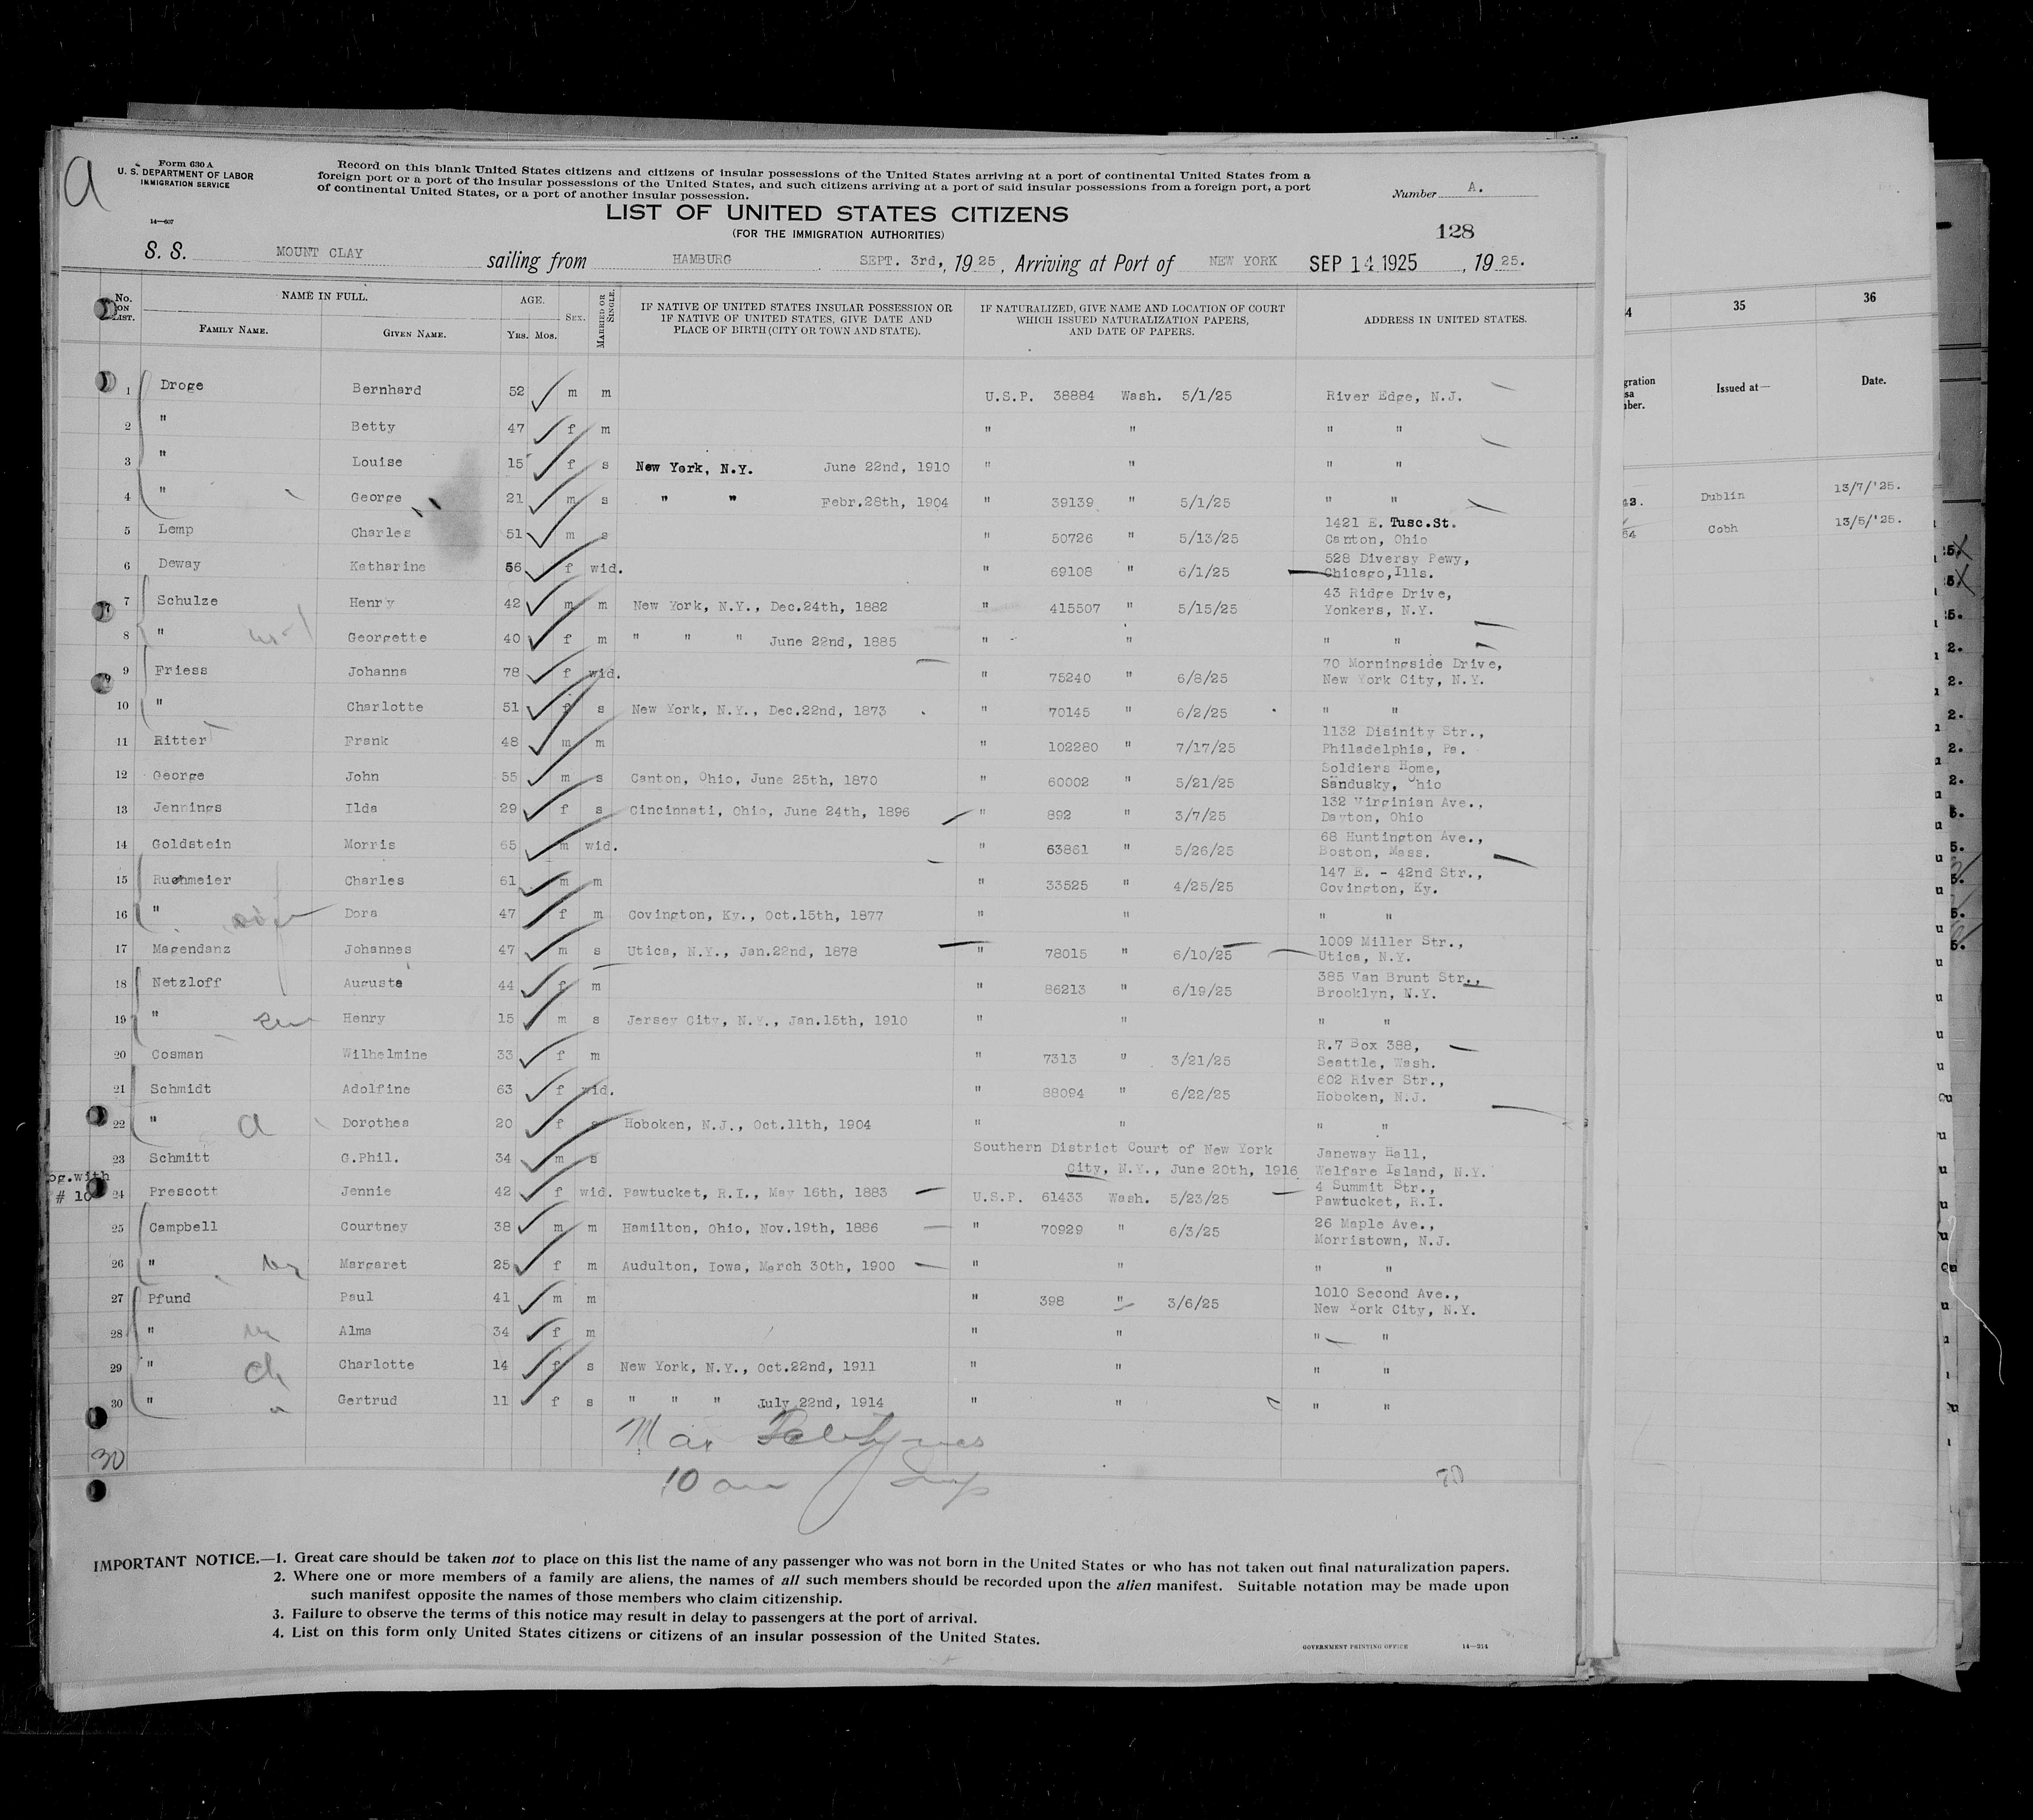 a
Form 630 A
U. S. DEPARTMENT OF LABOR
IMMIGRATION SERVICE
14—607
Record on this blank United States citizens and citizens of insular possessions of the United States arriving at a port of continental United States from a
foreign port or a port of the insular possessions of the United States, and such citizens arriving at a port of said insular possessions from a foreign port, a port
of continental United States, or a port of another insular possession.
Number A.
LIST OF UNITED STATES CITIZENS
(FOR THE IMMIGRATION AUTHORITIES)
128
S. S. MOUNT CLAY sailing from HAMBURG SEPT. 3rd, , 19 25 , Arriving at Port of NEW YORK SEP 14 1925 , 19 25.
No. ON LIST. NAME IN FULL. FAMILY NAME. GIVEN NAME. AGE. YRS. MOS. SEX. MARRIED OR SINGLE. IF NATIVE OF UNITED STATES INSULAR POSSESSION OR IF NATIVE OF UNITED STATES, GIVE DATE AND PLACE OF BIRTH (CITY OR TOWN AND STATE). IF NATURALIZED, GIVE NAME AND LOCATION OF COURT WHICH ISSUED NATURALIZATION PAPERS, AND DATE OF PAPERS. ADDRESS IN UNITED STATES.
1 Droge Bernhard 52 m m U.S.P. 38884 Wash. 5/1/25 River Edge, N.J.
2 " Betty 47 f m " " " "
3 " Louise 15 f s New York, N.Y. June 22nd, 1910 " " " "
4 " George 21 m s " " Febr.28th, 1904 " 39139 " 5/1/25 " "
5 Lemp Charles 51 m s " 50726 " 5/13/25 1421 E. Tusc.St. Canton, Ohio
6 Deway Katharine 56 f wid. " 69108 " 6/1/25 528 Diversy Pewy, Chicago,Ills.
7 Schulze Henry 42 m m New York, N.Y., Dec.24th, 1882 " 415507 " 5/15/25 43 Ridge Drive, Yonkers, N.Y.
8 " Georgette 40 f m " " " June 22nd, 1885 " " " "
9 Friess Johanna 78 f wid. " 75240 " 6/8/25 70 Morningside Drive, New York City, N.Y.
10 " Charlotte 51 f s New York, N.Y., Dec.22nd, 1873 " 70145 " 6/2/25 " "
11 Ritter Frank 48 m m " 102280 " 7/17/25 1132 Disinity Str., Philadelphia, Pa.
12 George John 55 m s Canton, Ohio, June 25th, 1870 " 60002 " 5/21/25 Soldiers Home, Sandusky, Ohio
13 Jennings Ilda 29 f s Cincinnati, Ohio, June 24th, 1896 " 892 " 3/7/25 132 Virginian Ave., Dayton, Ohio
14 Goldstein Morris 65 m wid. " 63861 " 5/26/25 68 Huntington Ave., Boston, Mass.
15 Ruehmeier Charles 61 m m " 33525 " 4/25/25 147 E. - 42nd Str., Covington, Ky.
16 " Dora 47 f m Covington, Ky., Oct.15th, 1877 " " " "
17 Magendanz Johannes 47 m s Utica, N.Y., Jan.22nd, 1878 " 78015 " 6/10/25 1009 Miller Str., Utica, N.Y.
18 Netzloff Auguste 44 f m " 86213 " 6/19/25 385 Van Brunt Str., Brooklyn, N.Y.
19 " Henry 15 m s Jersey City, N.Y., Jan.15th, 1910 " " " "
20 Cosman Wilhelmine 33 f m " 7313 " 3/21/25 R.7 Box 388, Seattle, Wash.
21 Schmidt Adolfine 63 f wid. " 88094 " 6/22/25 602 River Str., Hoboken, N.J.
22 " Dorothea 20 f s Hoboken, N.J., Oct.11th, 1904 " " " "
23 Schmitt G.Phil. 34 m s Southern District Court of New York City, N.Y., June 20th, 1916 Janeway Hall, Welfare Island, N.Y.
og.with # 10
24 Prescott Jennie 42 f wid. Pawtucket, R.I., May 16th, 1883 U.S.P. 61433 Wash. 5/23/25 4 Summit Str., Pawtucket, R.I.
25 Campbell Courtney 38 m m Hamilton, Ohio, Nov.19th, 1886 " 70929 " 6/3/25 26 Maple Ave., Morristown, N.J.
26 " Margaret 25 f m Audulton, Iowa, March 30th, 1900 " " " "
27 Pfund Paul 41 m m " 398 " 3/6/25 1010 Second Ave., New York City, N.Y.
28 " Alma 34 f m " " " "
29 " Charlotte 14 f s New York, N.Y., Oct.22nd, 1911 " " " "
30 " Gertrud 11 f s " " " July 22nd, 1914 " " " "
30
IMPORTANT NOTICE.—1. Great care should be taken not to place on this list the name of any passenger who was not born in the United States or who has not taken out final naturalization papers.
2. Where one or more members of a family are aliens, the names of all such members should be recorded upon the alien manifest. Suitable notation may be made upon
such manifest opposite the names of those members who claim citizenship.
3. Failure to observe the terms of this notice may result in delay to passengers at the port of arrival.
4. List on this form only United States citizens or citizens of an insular possession of the United States.
GOVERNMENT PRINTING OFFICE 14—314
35 36
Issued at— Date.
Dublin 13/7/'25.
Cobh 13/5/'25.